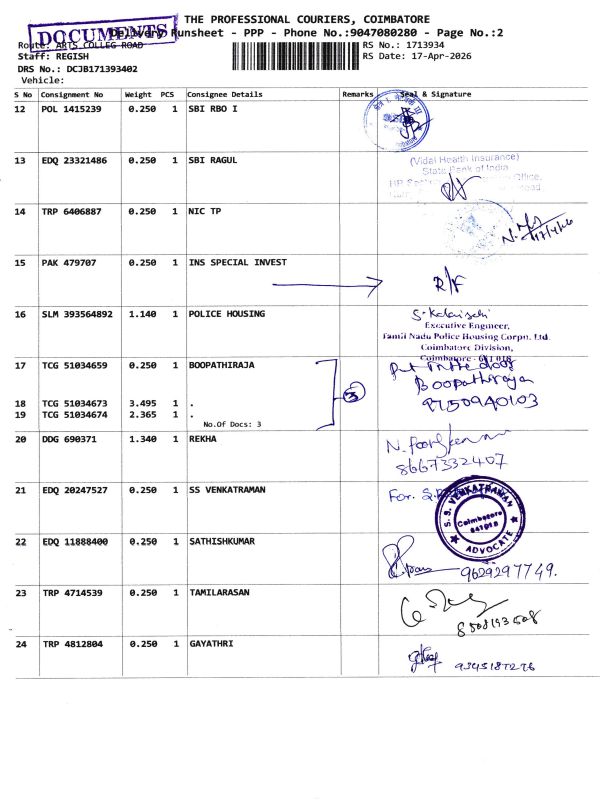 THE PROFESSIONAL COURIERS, COIMBATORE
DOCUMENTS
Delivery Runsheet - PPP - Phone No.:9047080280 - Page No.:2
Route: ARTS COLLEG ROAD
RS No.: 1713934
Staff: REGISH
RS Date: 17-Apr-2026
DRS No.: DCJB171393402
Vehicle:
S No Consignment No Weight PCS Consignee Details Remarks Seal & Signature
12 POL 1415239 0.250 1 SBI RBO I
13 EDQ 23321486 0.250 1 SBI RAGUL
(Vidal Health Insurance)
State Bank of India
Office,
14 TRP 6406887 0.250 1 NIC TP
17/4/26
15 PAK 479707 0.250 1 INS SPECIAL INVEST
R/F
16 SLM 393564892 1.140 1 POLICE HOUSING
Executive Engineer,
Tamil Nadu Police Housing Corpn. Ltd.
Coimbatore Division,
Coimbatore - 641 018
17 TCG 51034659 0.250 1 BOOPATHIRAJA
Put in the door
Boopathiraja
18 TCG 51034673 3.495 1 .
3
9750940103
19 TCG 51034674 2.365 1 .
No.Of Docs: 3
20 DDG 690371 1.340 1 REKHA
8667332407
21 EDQ 20247527 0.250 1 SS VENKATRAMAN
For. S.
S. S. VENKATRAMAN
Coimbatore
641018
ADVOCATE
22 EDQ 11888400 0.250 1 SATHISHKUMAR
9629297749.
23 TRP 4714539 0.250 1 TAMILARASAN
24 TRP 4812804 0.250 1 GAYATHRI